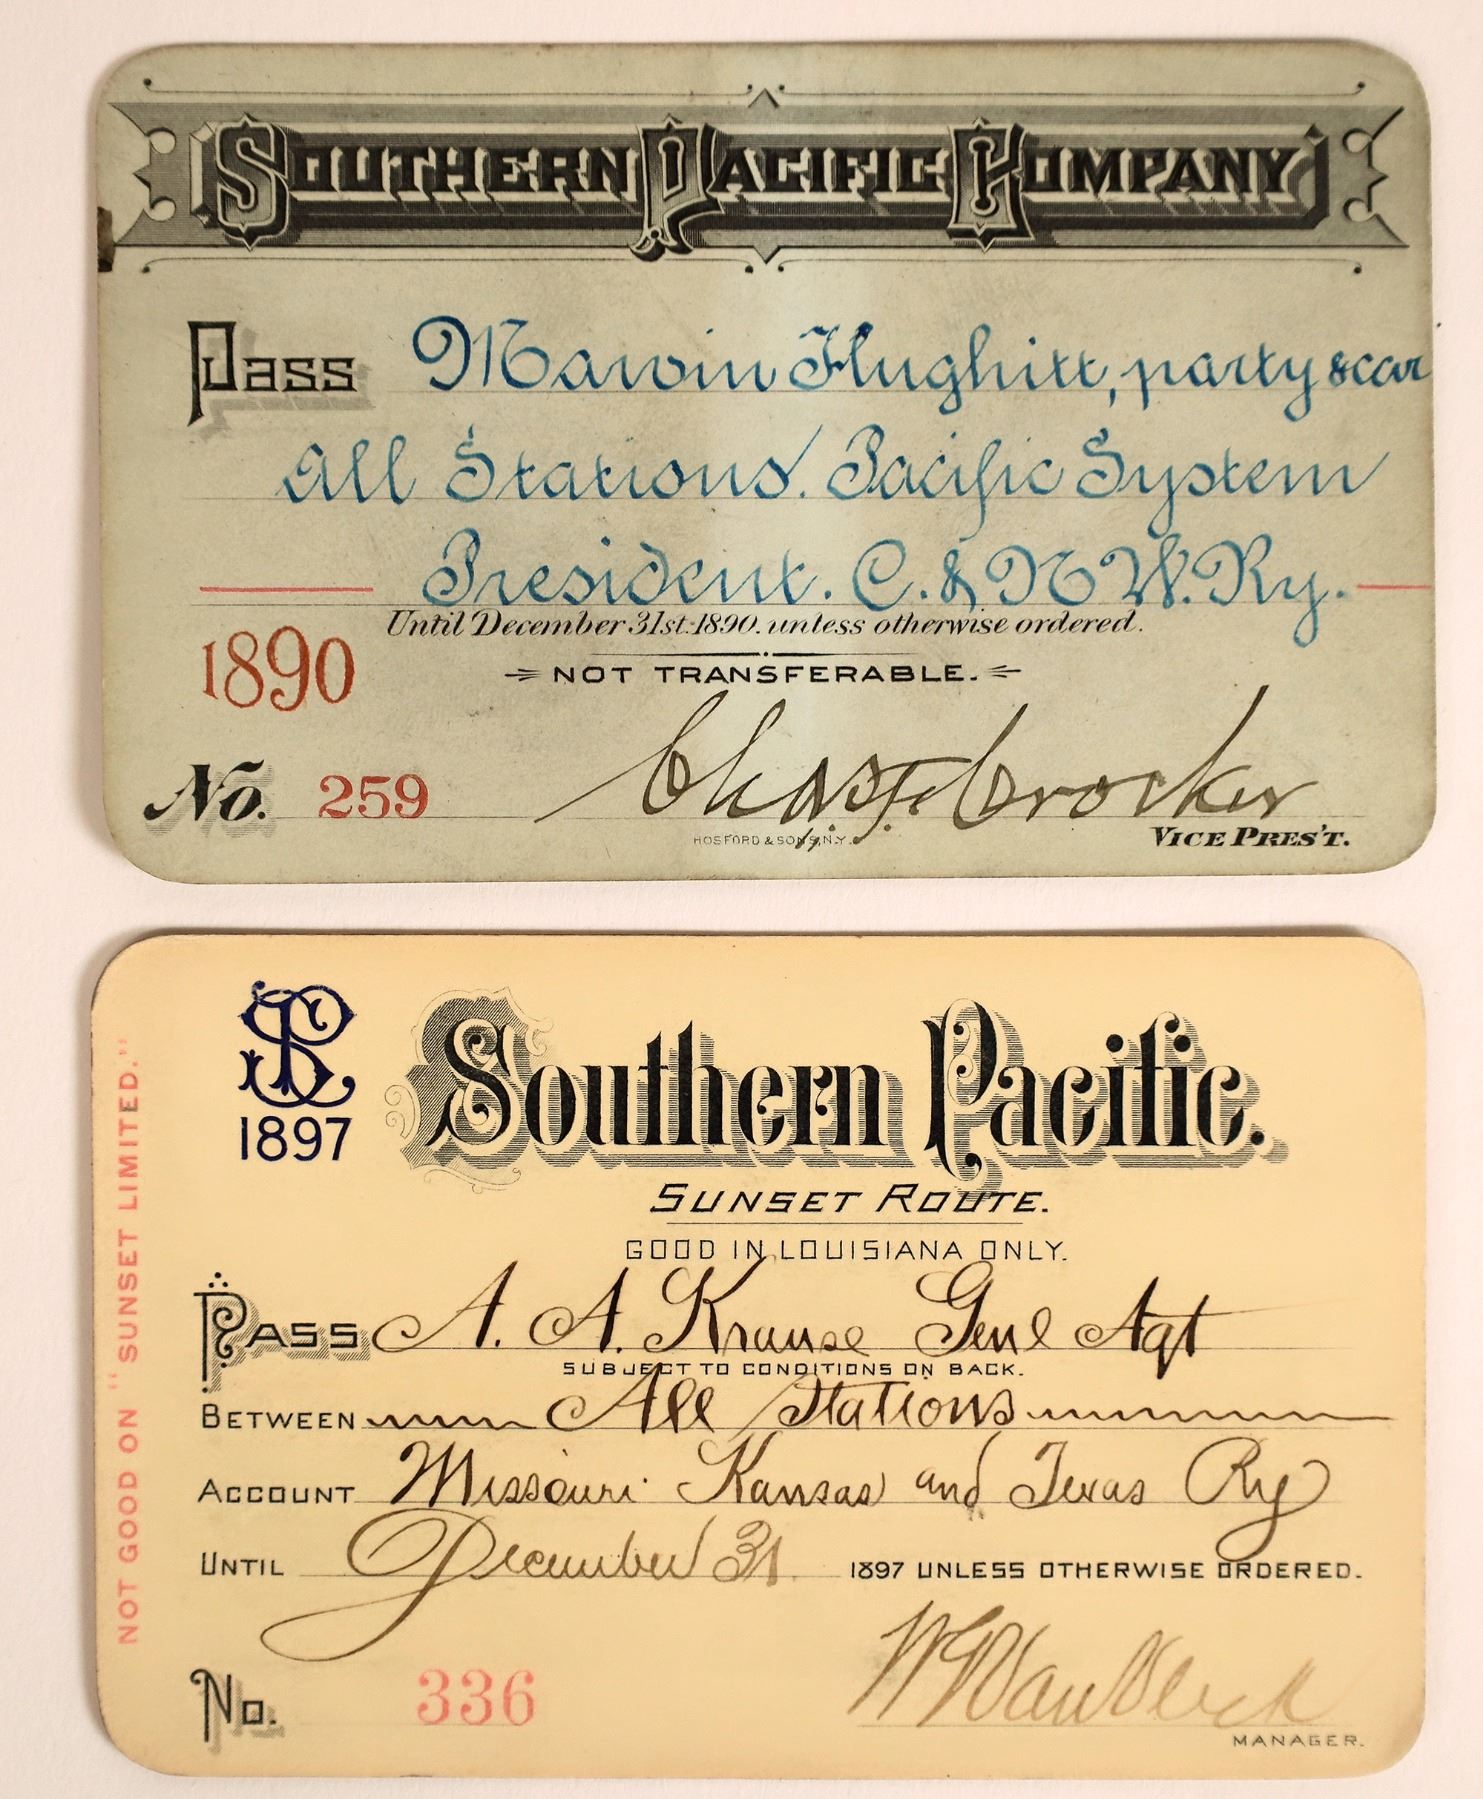 SOUTHERN PACIFIC COMPANY
Pass Marvin Hughitt, party & car
All Stations. Pacific System
President. C. & N W. Ry.
Until December 31st. 1890. unless otherwise ordered.
1890
NOT TRANSFERABLE.
No. 259
Chas F Crocker
HOSFORD & SONS, N.Y.
VICE PRES'T.
NOT GOOD ON "SUNSET LIMITED."
SP
1897
Southern Pacific.
SUNSET ROUTE.
GOOD IN LOUISIANA ONLY.
PASS A. A. Krause Genl Agt
SUBJECT TO CONDITIONS ON BACK.
BETWEEN All Stations
ACCOUNT Missouri Kansas and Texas Ry
UNTIL December 31 1897 UNLESS OTHERWISE ORDERED.
No. 336
W G Van Vleck
MANAGER.